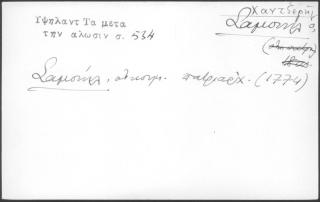 Υψηλαντ Τα μετα
την αλωσιν σ. 534
Χαντζερῆς
Σαμουήλ ο,
Σαμουήλ, οἰκουμ. πατριάρχ. (1774)